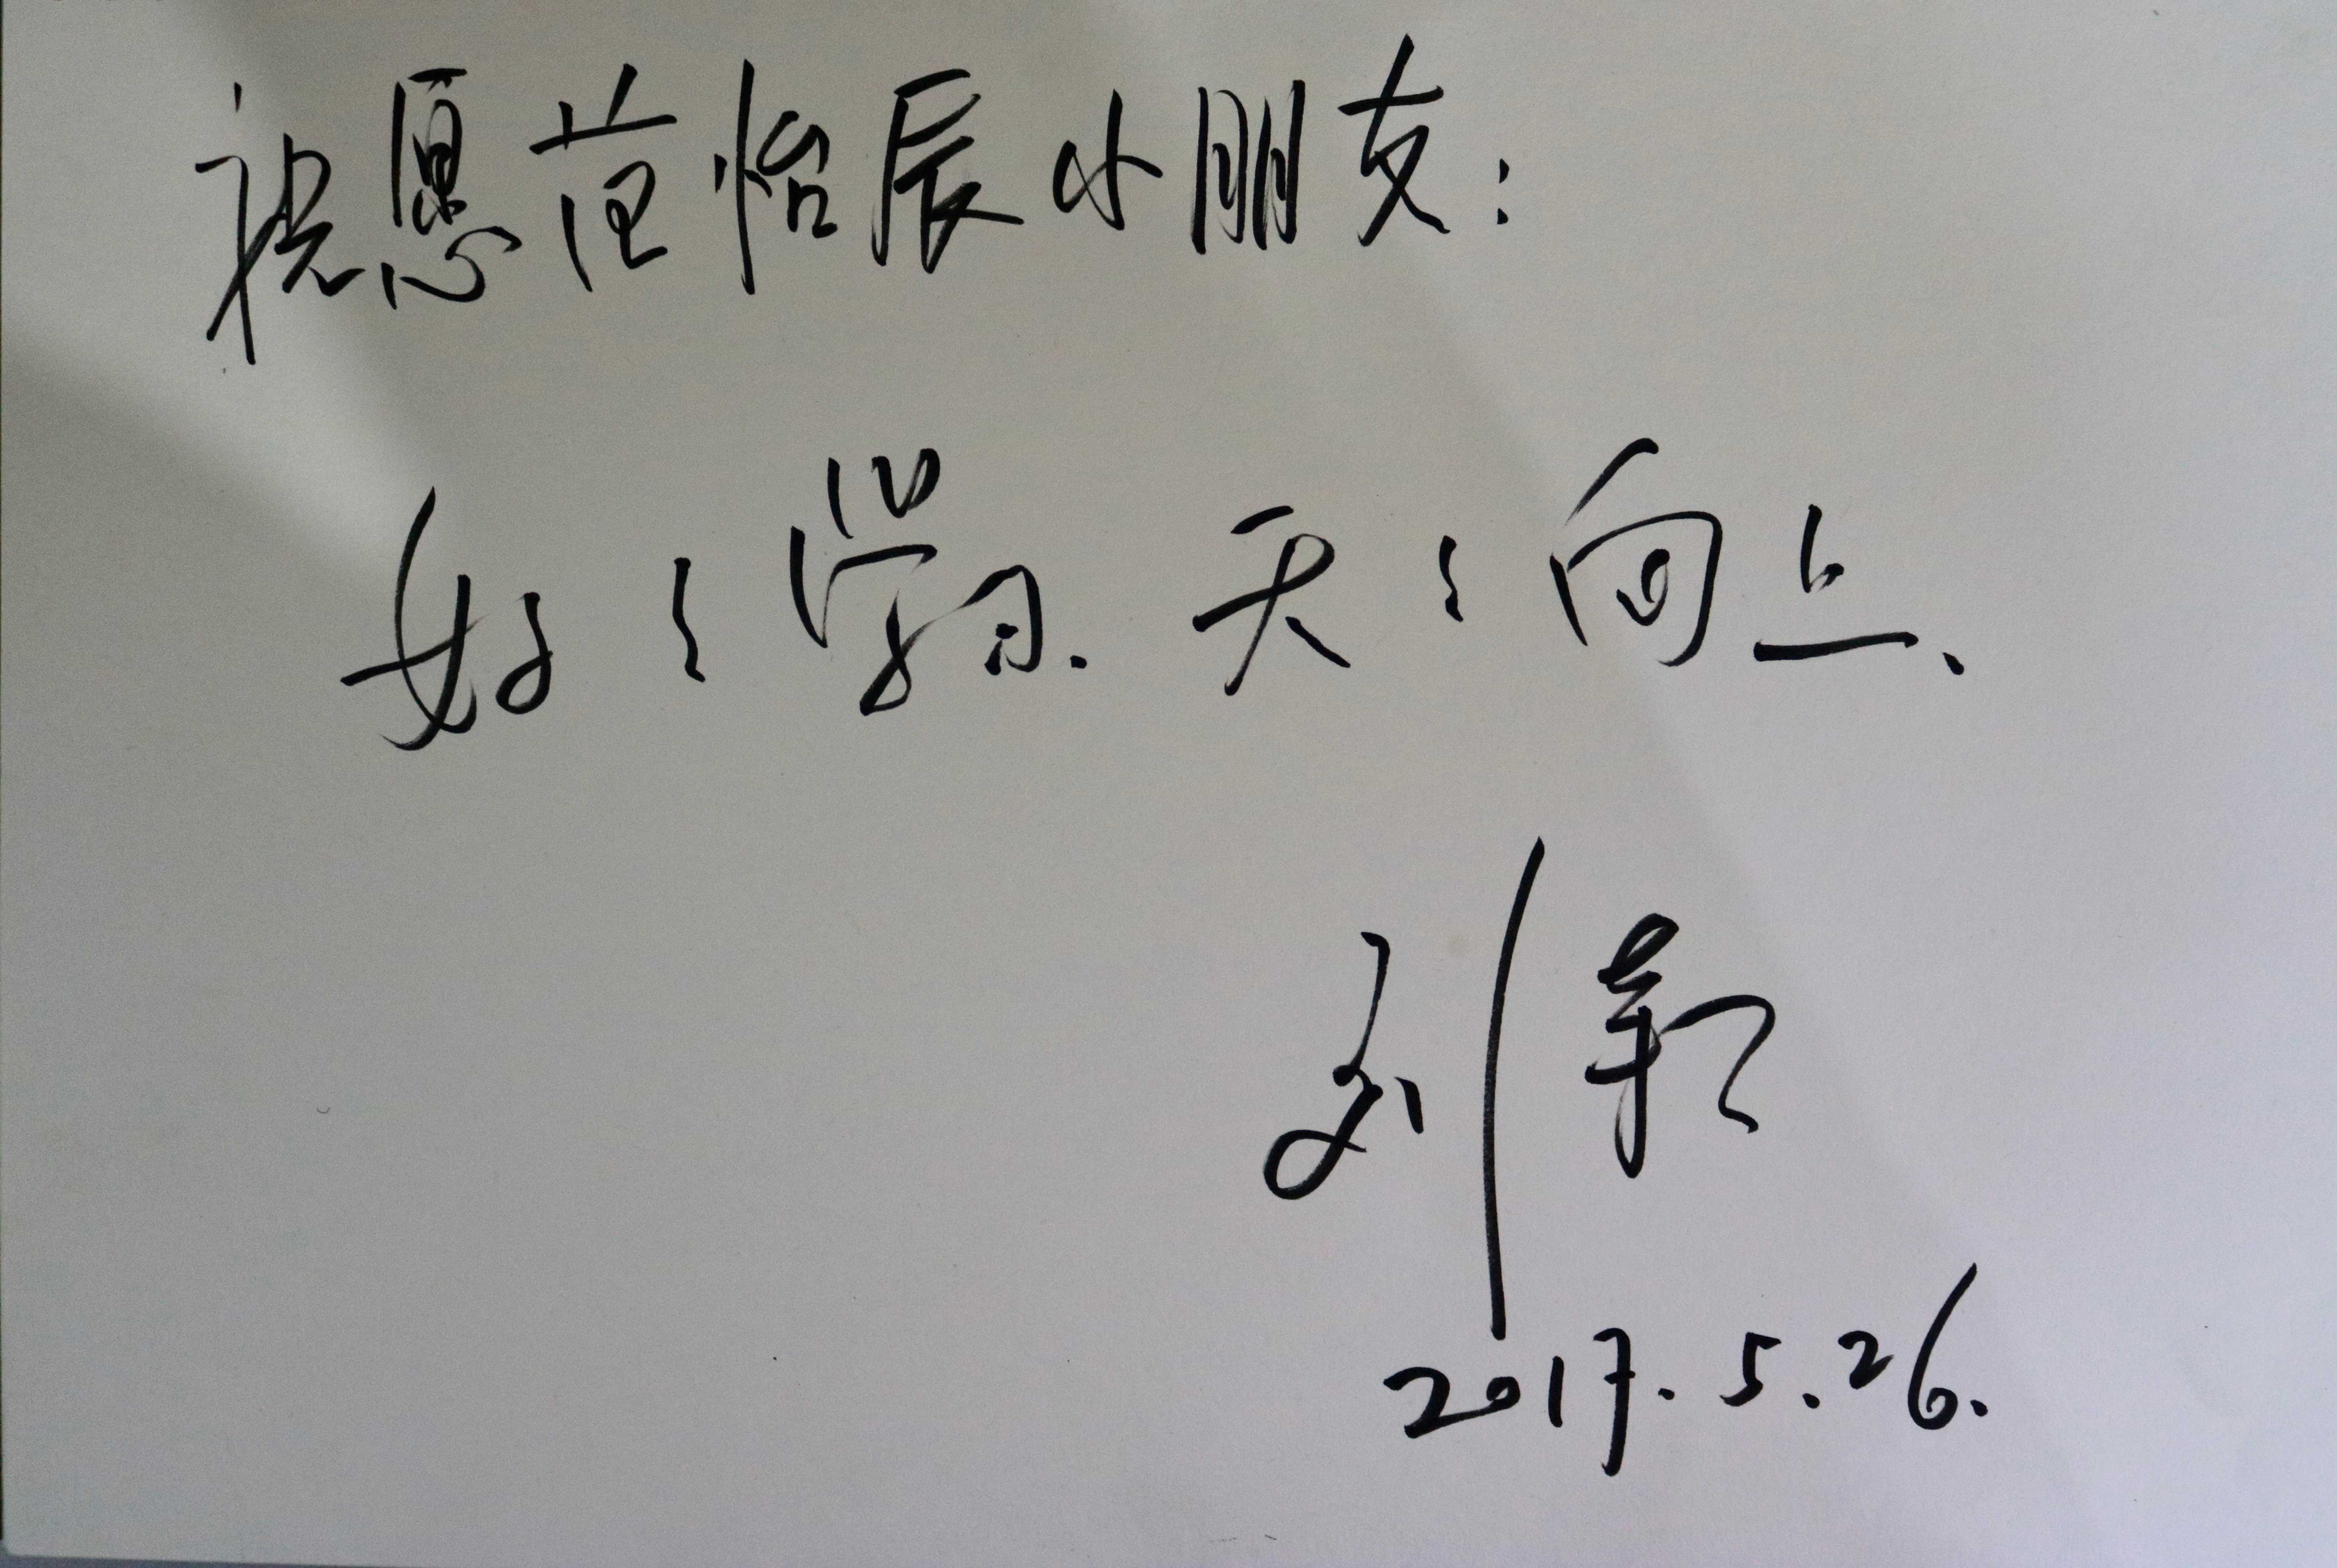 祝愿范怡辰小朋友：
好々学习.天々向上、
刘
2017.5.26.